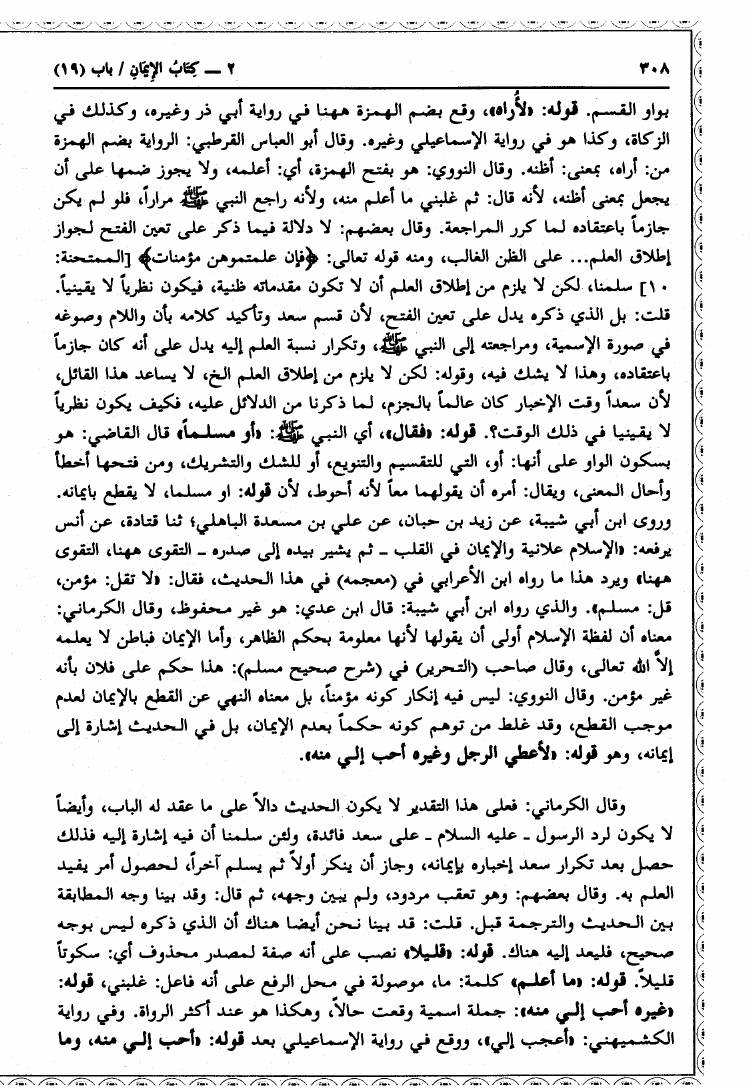 ٣٠٨
٢ ــ كِتَابُ الإِيمَانِ / باب (١٩)
بواو القسم. قوله: «لأُراه»، وقع بضم الهمزة ههنا في رواية أبي ذر وغيره، وكذلك في
الزكاة، وكذا هو في رواية الإسماعيلي وغيره. وقال أبو العباس القرطبي: الرواية بضم الهمزة
من: أراه، بمعنى: أظنه. وقال النووي: هو بفتح الهمزة، أي: أعلمه، ولا يجوز ضمها على أن
يجعل بمعنى أظنه، لأنه قال: ثم غلبني ما أعلم منه، ولأنه راجع النبي ﷺ مراراً، فلو لم يكن
جازماً باعتقاده لما كرر المراجعة. وقال بعضهم: لا دلالة فيما ذكر على تعين الفتح لجواز
إطلاق العلم... على الظن الغالب، ومنه قوله تعالى: ﴿فإن علمتموهن مؤمنات﴾ [الممتحنة:
١٠] سلمنا، لكن لا يلزم من إطلاق العلم أن لا تكون مقدماته ظنية، فيكون نظرياً لا يقينياً.
قلت: بل الذي ذكره يدل على تعين الفتح، لأن قسم سعد وتأكيد كلامه بأن واللام وصوغه
في صورة الإسمية، ومراجعته إلى النبي ﷺ، وتكرار نسبة العلم إليه يدل على أنه كان جازماً
باعتقاده، وهذا لا يشك فيه، وقوله: لكن لا يلزم من إطلاق العلم الخ، لا يساعد هذا القائل،
لأن سعداً وقت الإخبار كان عالماً بالجزم، لما ذكرنا من الدلائل عليه، فكيف يكون نظرياً
لا يقينيا في ذلك الوقت؟. قوله: «فقال»، أي النبي ﷺ: «أو مسلماً» قال القاضي: هو
بسكون الواو على أنها: أو، التي للتقسيم والتنويع، أو للشك والتشريك، ومن فتحها أخطأ
وأحال المعنى، ويقال: أمره أن يقولهما معاً لأنه أحوط، لأن قوله: او مسلما، لا يقطع بايمانه.
وروى ابن أبي شيبة، عن زيد بن حبان، عن علي بن مسعدة الباهلي؛ ثنا قتادة، عن أنس
يرفعه: «الإسلام علانية والإيمان في القلب ـ ثم يشير بيده إلى صدره ـ التقوى ههنا، التقوى
ههنا» ويرد هذا ما رواه ابن الأعرابي في (معجمه) في هذا الحديث، فقال: «لا تقل: مؤمن،
قل: مسلم». والذي رواه ابن أبي شيبة: قال ابن عدي: هو غير محفوظ، وقال الكرماني:
معناه أن لفظة الإسلام أولى أن يقولها لأنها معلومة بحكم الظاهر، وأما الإيمان فباطن لا يعلمه
إلاَّ الله تعالى، وقال صاحب (التحرير) في (شرح صحيح مسلم): هذا حكم على فلان بأنه
غير مؤمن. وقال النووي: ليس فيه إنكار كونه مؤمناً، بل معناه النهي عن القطع بالإيمان لعدم
موجب القطع، وقد غلط من توهم كونه حكماً بعدم الإيمان، بل في الحديث إشارة إلى
إيمانه، وهو قوله: «لأعطي الرجل وغيره أحب إلي منه».
وقال الكرماني: فعلى هذا التقدير لا يكون الحديث دالاً على ما عقد له الباب، وأيضاً
لا يكون لرد الرسول ـ عليه السلام ـ على سعد فائدة، ولئن سلمنا أن فيه إشارة إليه فذلك
حصل بعد تكرار سعد إخباره بإيمانه، وجاز أن ينكر أولاً ثم يسلم آخراً، لحصول أمر يفيد
العلم به. وقال بعضهم: وهو تعقب مردود، ولم يبين وجهه، ثم قال: وقد بينا وجه المطابقة
بين الحديث والترجمة قبل. قلت: قد بينا نحن أيضا هناك أن الذي ذكره ليس بوجه
صحيح، فليعد إليه هناك. قوله: «قليلا» نصب على أنه صفة لمصدر محذوف أي: سكوتاً
قليلاً. قوله: «ما أعلم» كلمة: ما، موصولة في محل الرفع على أنه فاعل: غلبني، قوله:
«غيره أحب إلي منه»: جملة اسمية وقعت حالاً، وهكذا هو عند أكثر الرواة. وفي رواية
الكشميهني: «أعجب إلي»، ووقع في رواية الإسماعيلي بعد قوله: «أحب إلي منه، وما